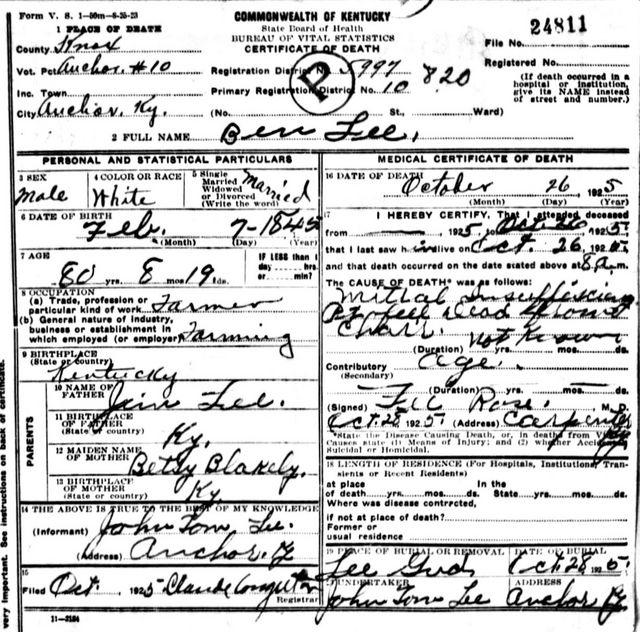 Form V. S. 1-50m-8-25-23
COMMONWEALTH OF KENTUCKY
State Board of Health
BUREAU OF VITAL STATISTICS
CERTIFICATE OF DEATH
24811
1 PLACE OF DEATH
County Knox
File No.
Vot. Pct. Anchor #10
Registration District No. 5997 820
Registered No.
Inc. Town
Primary Registration District No. 10
(If death occurred in a hospital or institution, give its NAME instead of street and number.)
City Anchor, Ky. (No. St., Ward)
2 FULL NAME Ben Lee.
PERSONAL AND STATISTICAL PARTICULARS
3 SEX
Male
4 COLOR OR RACE
White
5 Single
Married
Widowed
or Divorced
(Write the word)
Married
6 DATE OF BIRTH
Feb. 7-1845
(Month) (Day) (Year)
7 AGE
80 yrs. 8 mos. 19 ds.
IF LESS than 1
day hrs.
or min?
8 OCCUPATION
(a) Trade, profession or
particular kind of work Farmer
(b) General nature of industry,
business or establishment in
which employed (or employer) Farming
9 BIRTHPLACE
(State or country)
Kentucky
PARENTS
10 NAME OF
FATHER Jim Lee.
11 BIRTHPLACE
OF FATHER
(State or country) Ky.
12 MAIDEN NAME
OF MOTHER Betsy Blakely.
13 BIRTHPLACE
OF MOTHER
(State or country) Ky
14 THE ABOVE IS TRUE TO THE BEST OF MY KNOWLEDGE
(Informant) John Tom Lee.
(Address) Anchor. Ky
15
Filed Oct. 1925 Claude
Registrar
11-3184
MEDICAL CERTIFICATE OF DEATH
16 DATE OF DEATH
October 26 1925
(Month) (Day) (Year)
17 I HEREBY CERTIFY, That I attended deceased
from 1925 to Oct. 26 1925
that I last saw him live on Oct. 26, 1925
and that death occurred on the date stated above at 8 a.m.
The CAUSE OF DEATH* was as follows:
Mitral Insufficiency
Pt fell dead from
Chair. Not Known
(Duration) yrs. mos. ds.
Contributory Age.
(Secondary)
(Duration) yrs. mos. ds.
(Signed) Rose, M. D.
Oct. 28 1925 (Address)
*State the Disease Causing Death, or, in deaths from Violent
Causes state (1) Means of Injury; and (2) whether Accidental,
Suicidal or Homicidal.
18 LENGTH OF RESIDENCE (For Hospitals, Institutions, Tran-
sients or Recent Residents)
at place In the
of death yrs. mos. ds. State yrs. mos. ds.
Where was disease contracted,
if not at place of death?
Former or
usual residence
19 PLACE OF BURIAL OR REMOVAL
Lee Grd
DATE OF BURIAL
Oct. 28 1925
UNDERTAKER
John Tom Lee
ADDRESS
Anchor Ky.
very important. See instructions on back of certificate.